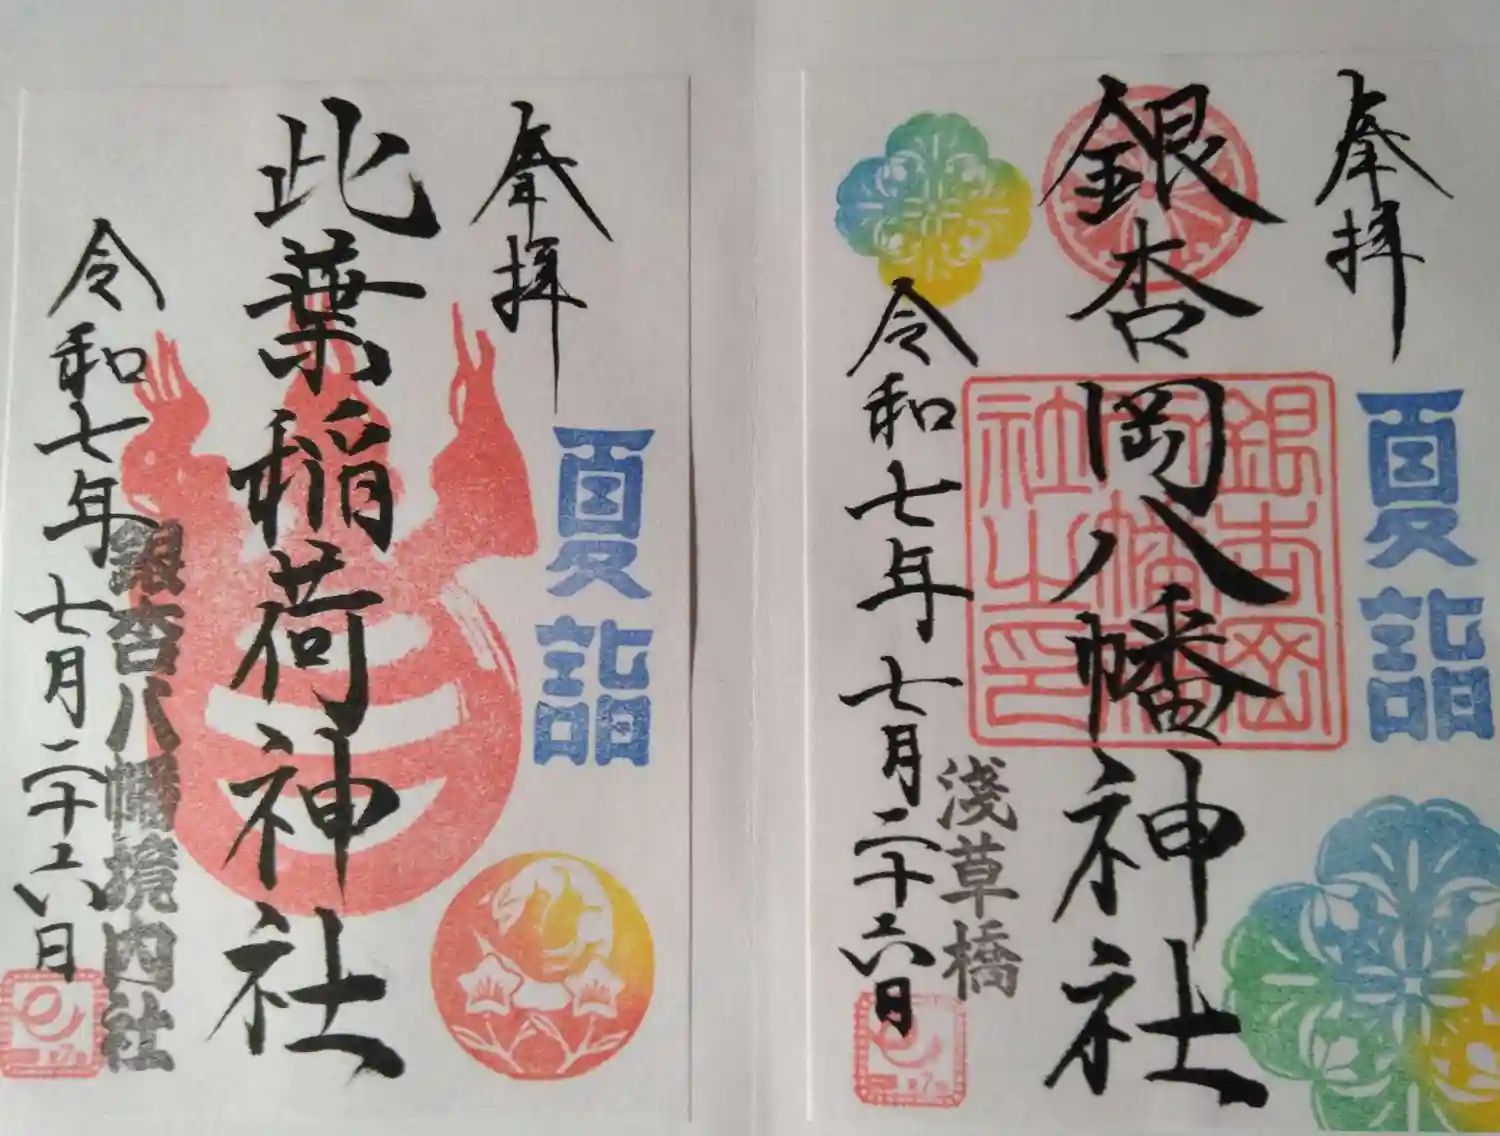 奉拝
夏詣
銀杏岡八幡神社
銀杏岡八幡神社之印
淺草橋
令和七年七月二十六日
奉拝
夏詣
此葉稲荷神社
銀杏八幡境内社
令和七年七月二十六日